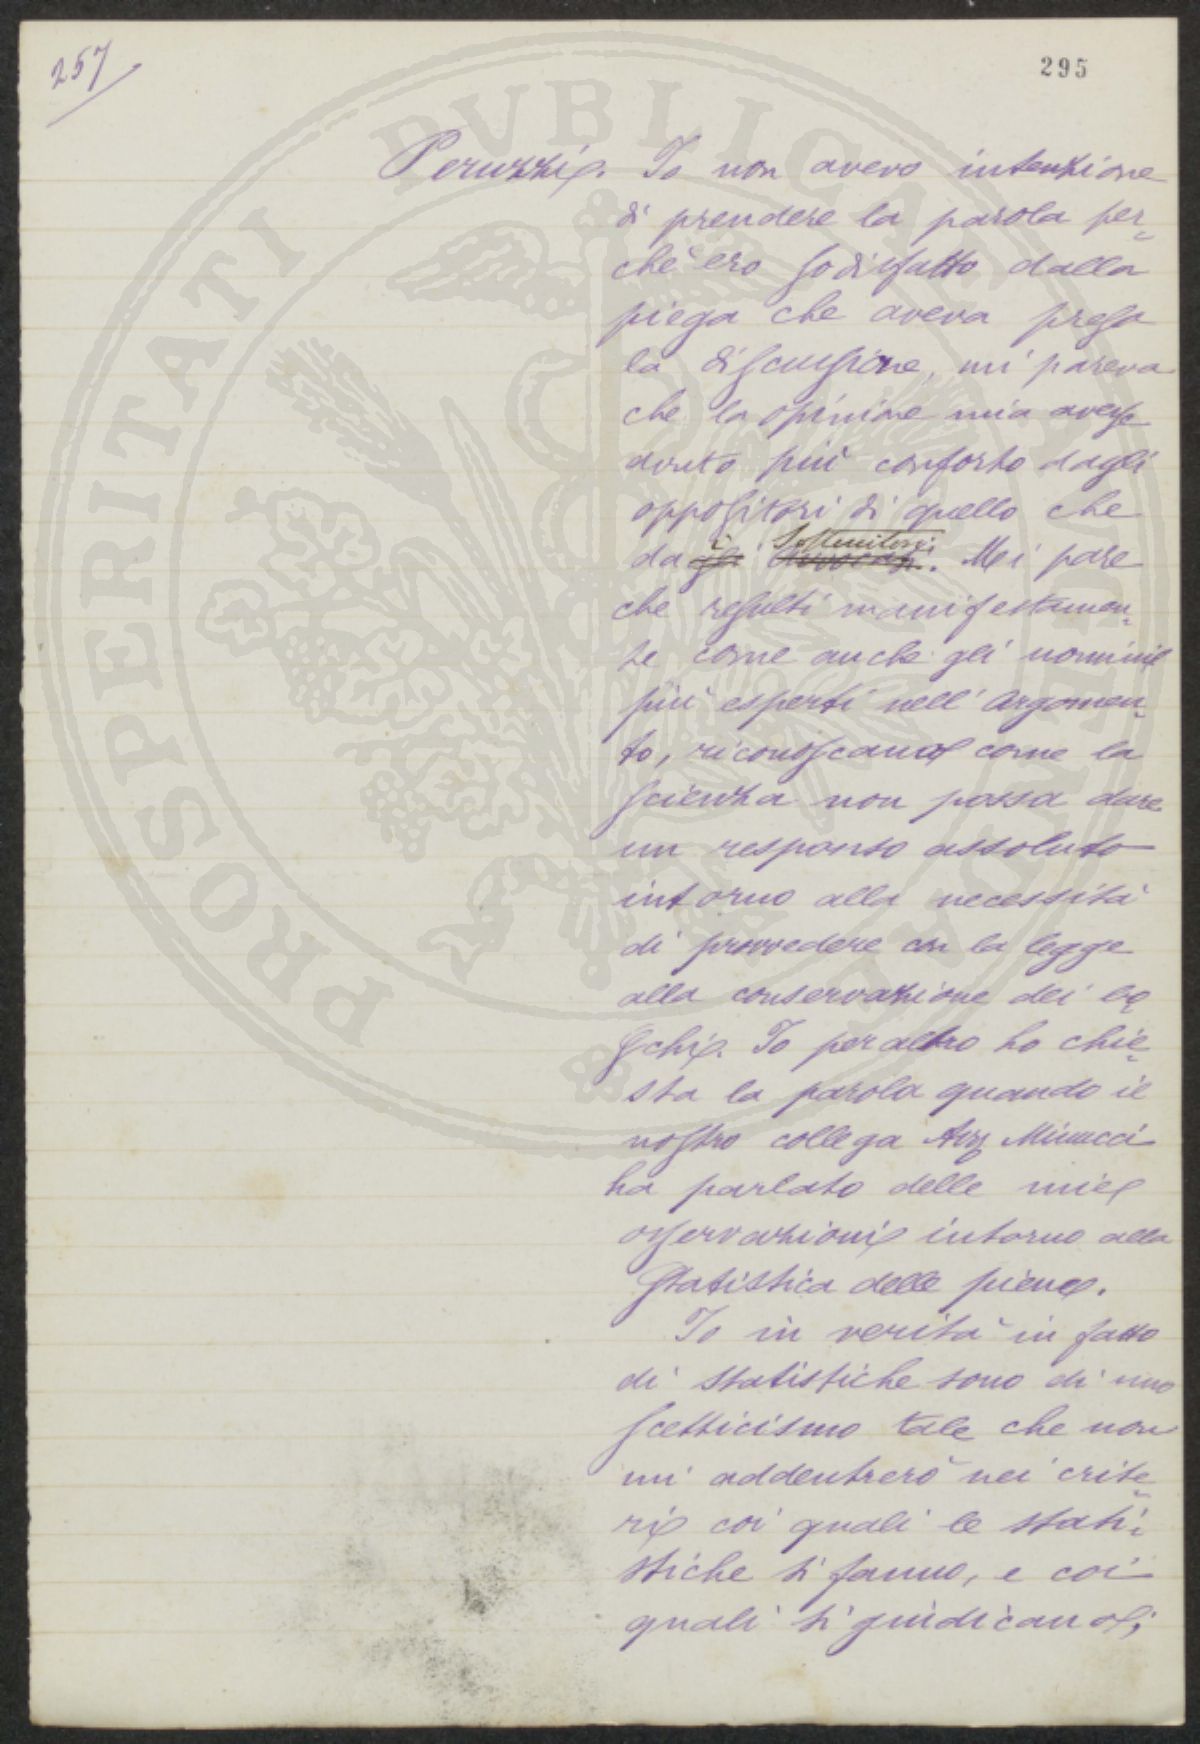 257
295
Peruzzi. Io non avevo intenzione
di prendere la parola per-
chè ero sodisfatto dalla
piega che aveva presa
la discussione, mi pareva
che la opinione mia avesse
avuto più conforto dagli
oppositori di quello che
dagli i Sostenitori. Mei pare
che resulti manifestamen-
te come anche gli uomini
più esperti nell' argomen-
to, riconoscano come la
scienza non possa dare
un responso assoluto
intorno alla necessità
di provvedere con la legge
alla conservazione dei bo
schi. Io peraltro ho chie-
sta la parola quando il
nostro collega Avv Minucci
ha parlato delle mie
osservazioni intorno alla
statistica delle piene.
Io in verità in fatto
di statistiche sono di uno
scetticismo tale che non
mi addentrerò nei crite-
ri coi quali le stati-
stiche si fanno, e coi
quali si giudicano;
PROSPERITATI PVBLICAE AVGENDAE